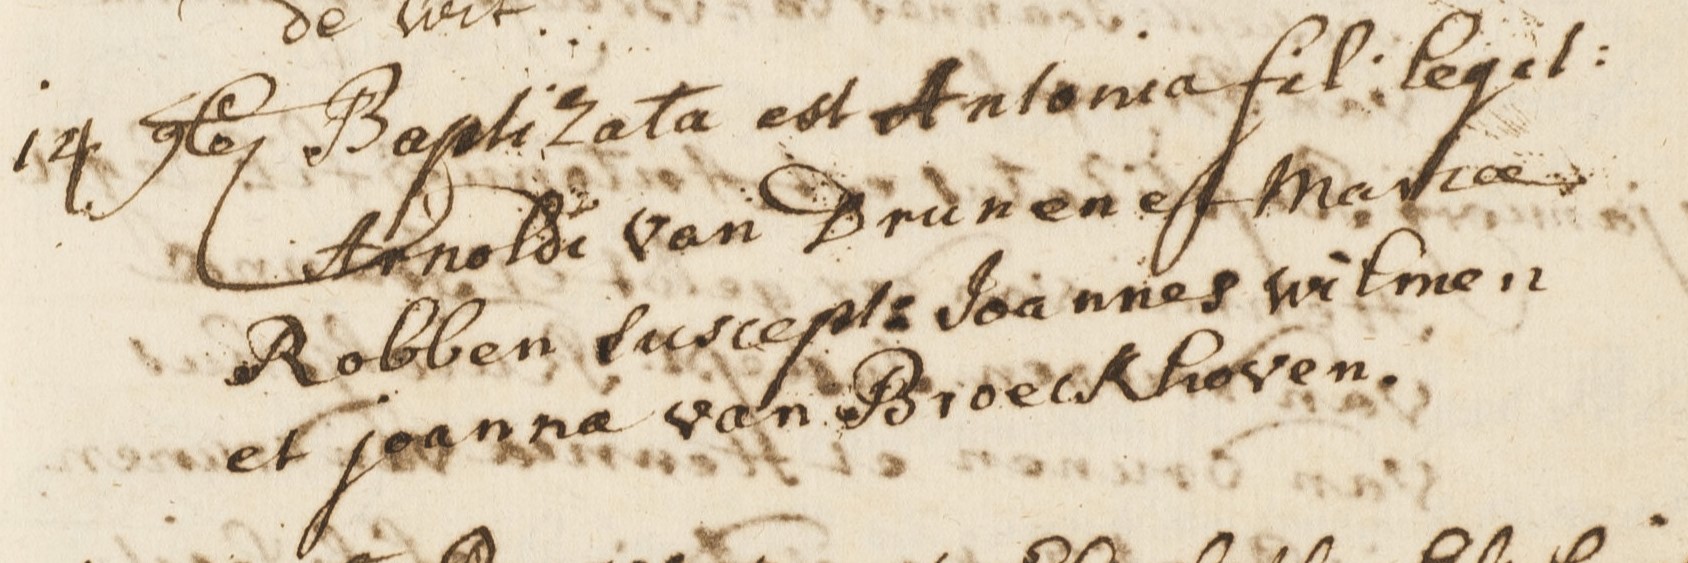 de wit
14 9bej Baptizata est Antonia fil: legit:
Arnoldi van Drunen et Mariæ
Robben suscept: Joannes wilmen
et joanna van Broeckhoven.